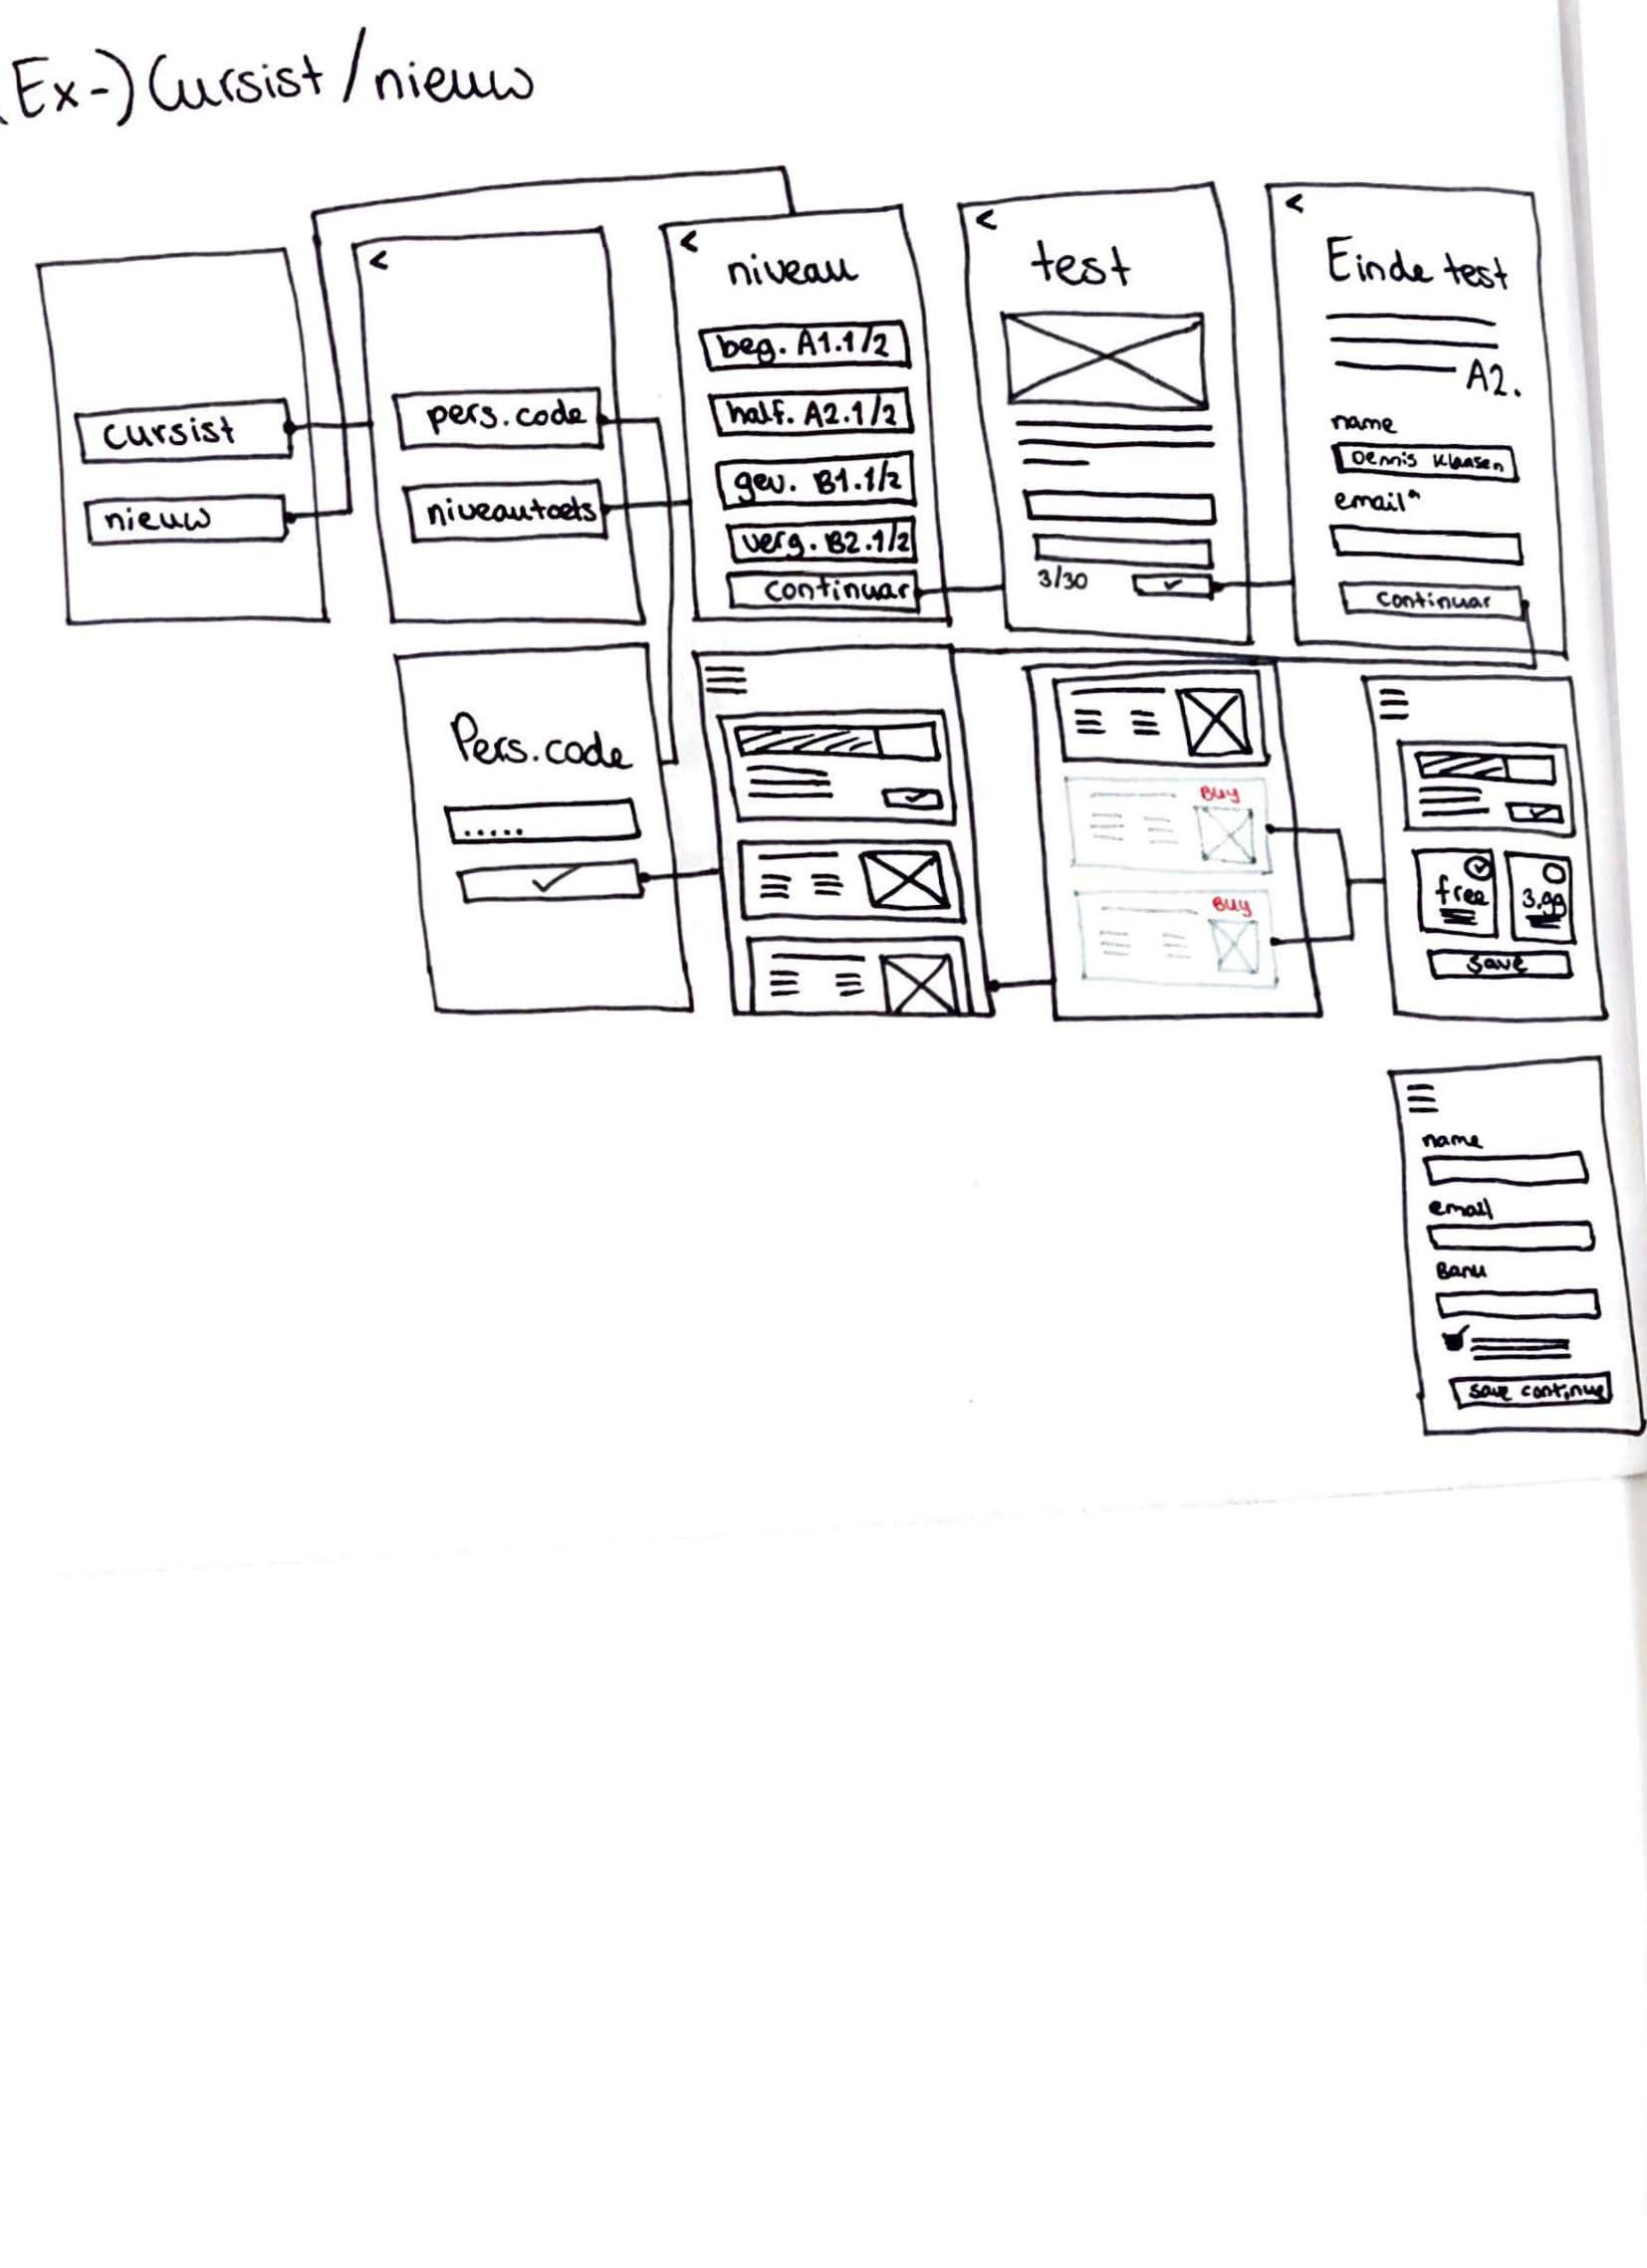 (Ex-) Cursist / nieuw
<
cursist
nieuw
<
pers. code
niveautoets
<
niveau
beg. A1.1/2
half. A2.1/2
gev. B1.1/2
verg. B2.1/2
continuar
<
test
3/30
<
Einde test
A2.
name
Dennis Klaasen
email*
continuar
Pers. code
.....
Buy
Buy
free
3.99
save
name
email
Bank
save continue